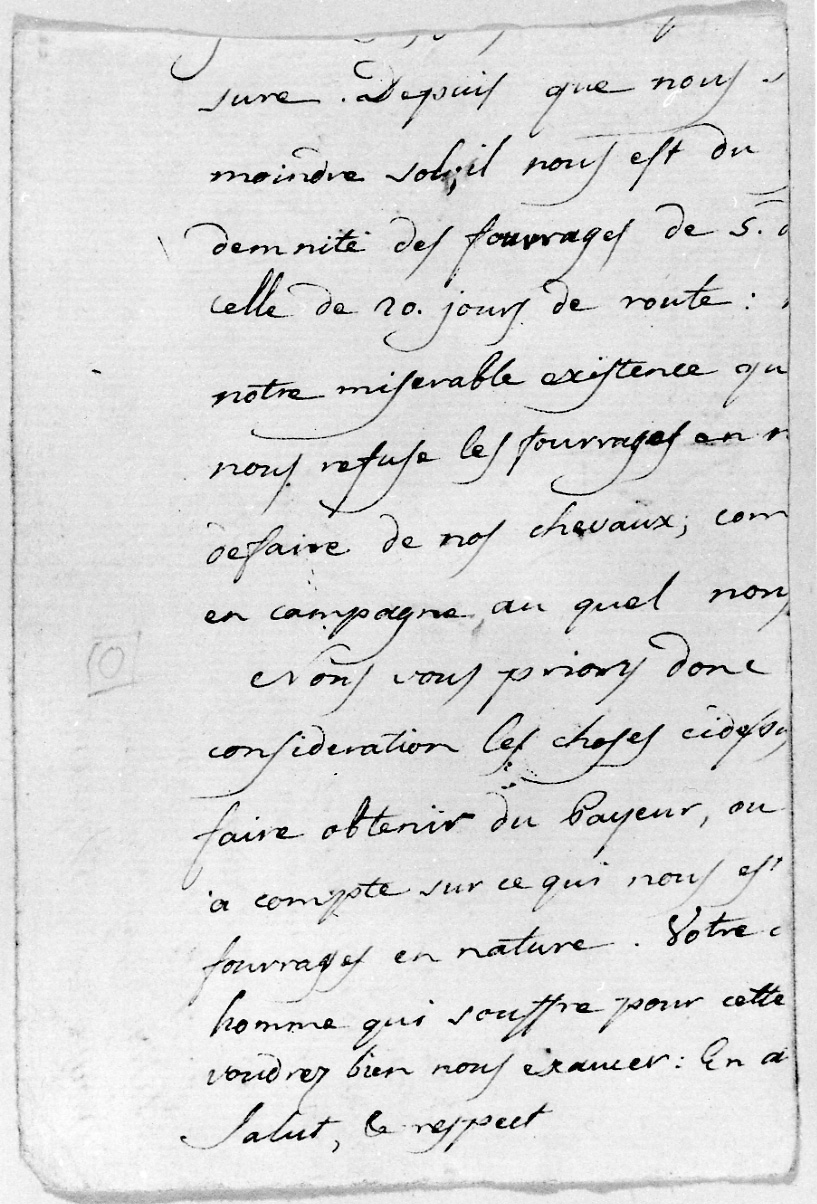 sure. Depuis que nous
moindre sol; il nous est du
demnité des fourrages de 5.
celle de 20. jours de route:
notre miserable existence qu
nous refuse les fourrages en
defaire de nos chevaux; com
en campagne, au quel nous
Nous vous prions donc
consideration les choses cidessus
faire obtenir du Payeur, ou
a compte sur ce qui nous est
fourrages en nature. Votre
homme qui souffre pour cette
voudrez bien nous exaucer: En a
Salut, & respect